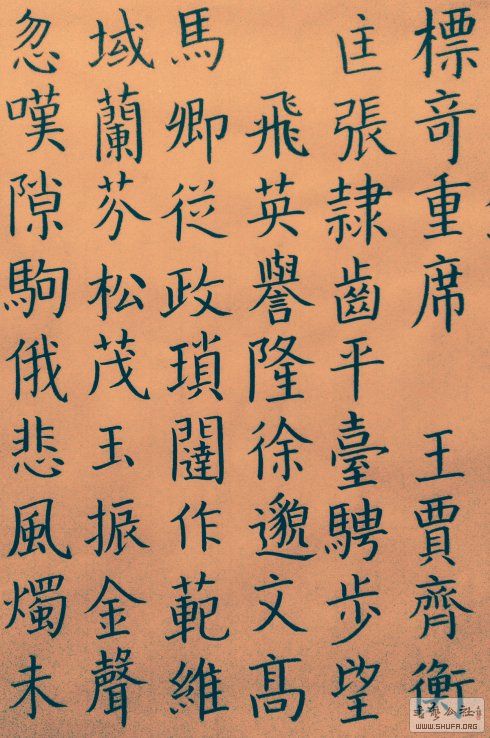 標竒重席 王賈齊衡
匡張隷齒平臺騁歩望
飛英譽隆徐邈文髙
馬卿従政瑣闥作範維
域蘭芬松茂玉振金聲
忽嘆隙駒俄悲風燭未
WWW.SHUFA.ORG